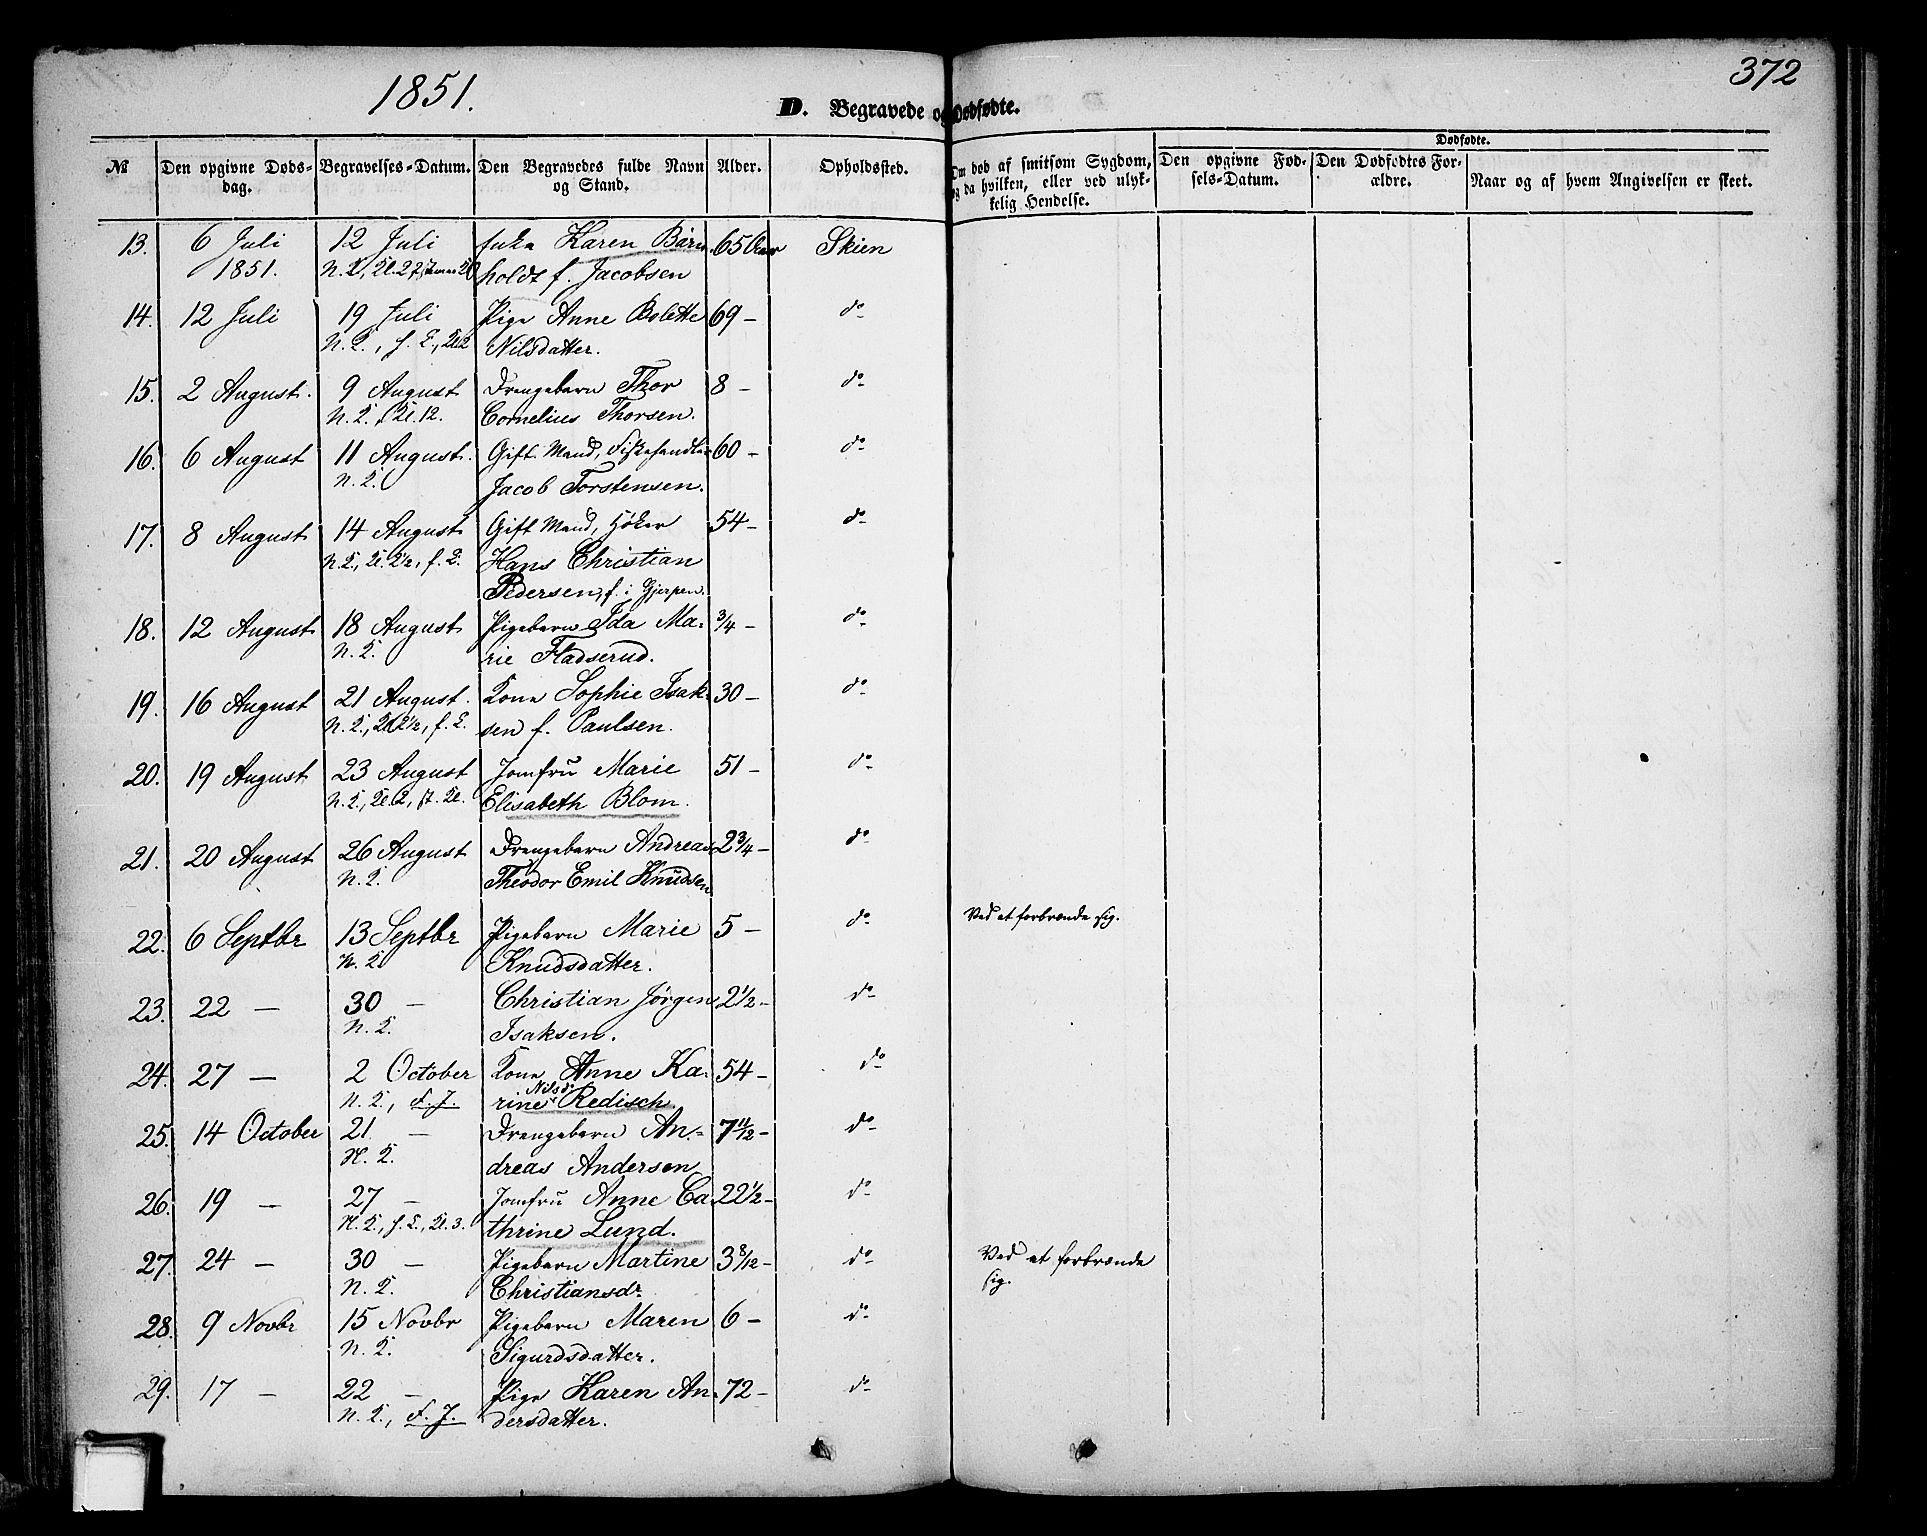 1851.
372
D. Begravede og Dødfødte.
№
Den opgivne Døds-
dag.
Begravelses-Datum.
Den Begravedes fulde Navn
og Stand.
Alder.
Opholdssted.
Om død af smitsom Sygdom,
og da hvilken, eller ved ulyk-
kelig Hendelse.
Dødfødte.
Den opgivne Fød-
sels-Datum.
Den Dødfødtes For-
ældre.
Naar og af hvem Angivelsen er skeet.
13. 6 Juli 12 Juli Enke Karen Bärn- 65 Aar Skien
1851. N. K., holdt f. Jacobsen
14. 12 Juli 19 Juli Pige Anne Bolette 69 – do
N. K., f. L., Kl. 2 Nilsdatter.
15. 2 August. 9 August Drengebarn Thor 8 – do
N. K. Kl. 12. Cornelius Thorsen.
16. 6 August 11 August. Gift Mand, Fiskehandler 60 – do
N. K. Jacob Torstensen.
17. 8 August 14 August Gift Mand, Höker 54 – do
N. K., Kl. 2½, f. L. Hans Christian
Pedersen, f. i Gjerpen.
18. 12 August 18 August Pigebarn Ida Ma- ¾ – do
N. K. rie Fladserud.
19. 16 August 21 August. Kone Sophie Isak- 30 – do
N. K., Kl. 2½, f. L. sen f. Paulsen.
20. 19 August 23 August Jomfru Marie 51 – do
N. K., Kl. 2, st. Kl. Elisabeth Blom.
21. 20 August 26 August Drengebarn Andreas 2¾ – do
N. K. Theodor Emil Knudsen
22. 6 Septbr 13 Septbr Pigebarn Marie 5 – do Ved at forbrænde sig.
N. K. Knudsdatter.
23. 22 – 30 – Christian Jörgen 2½ – do
N. K. Isaksen.
24. 27 – 2 October Kone Anne Ka- 54 – do
N. K., F. J. rine Nilsdr Redisch.
25. 14 October 21 – Drengebarn An- 7 11/12 – do
N. K. dreas Andersen
26. 19 – 27 – Jomfru Anne Ca- 22½ – do
N. K., f. L., Kl. 3. thrine Lund.
27. 24 – 30 – Pigebarn Martine 3 8/12 – do Ved at forbrænde
N. K. Christiansdr. sig.
28. 9 Novbr 15 Novbr Pigebarn Maren 6 – do
N. K. Sigurdsdatter.
29. 17 – 22 – Pige Karen An- 72 – do
N. K., F. J. dersdatter.